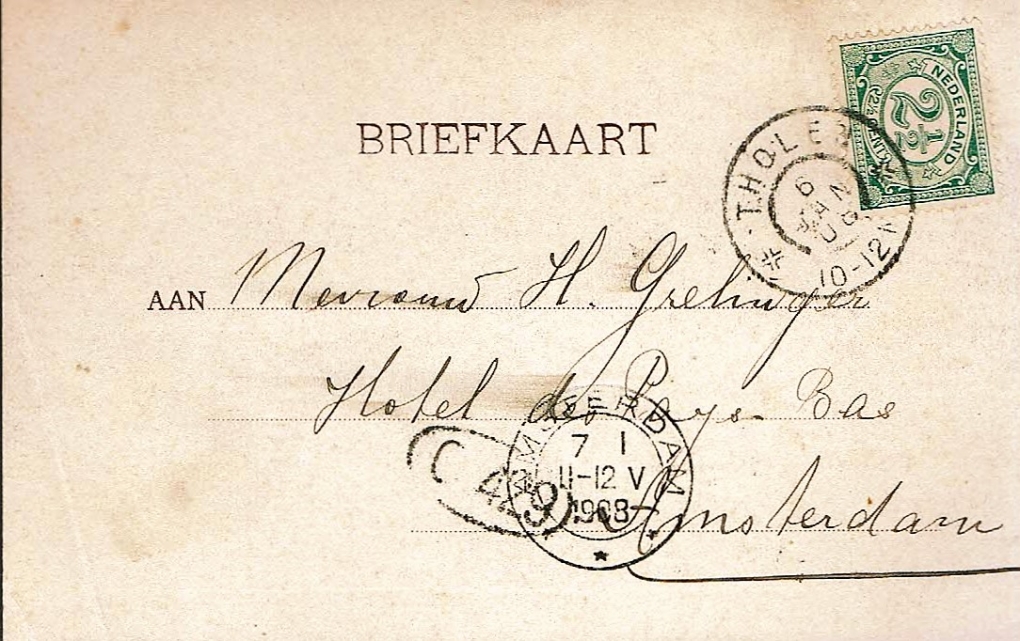 BRIEFKAART
NEDERLAND
2½
THOLEN
6 JAN 08
10-12V
AAN Mevrouw H. Grelinger
Hotel des Pays-Bas
AMSTERDAM
7 1
11-12 V
1908
C 429
Amsterdam